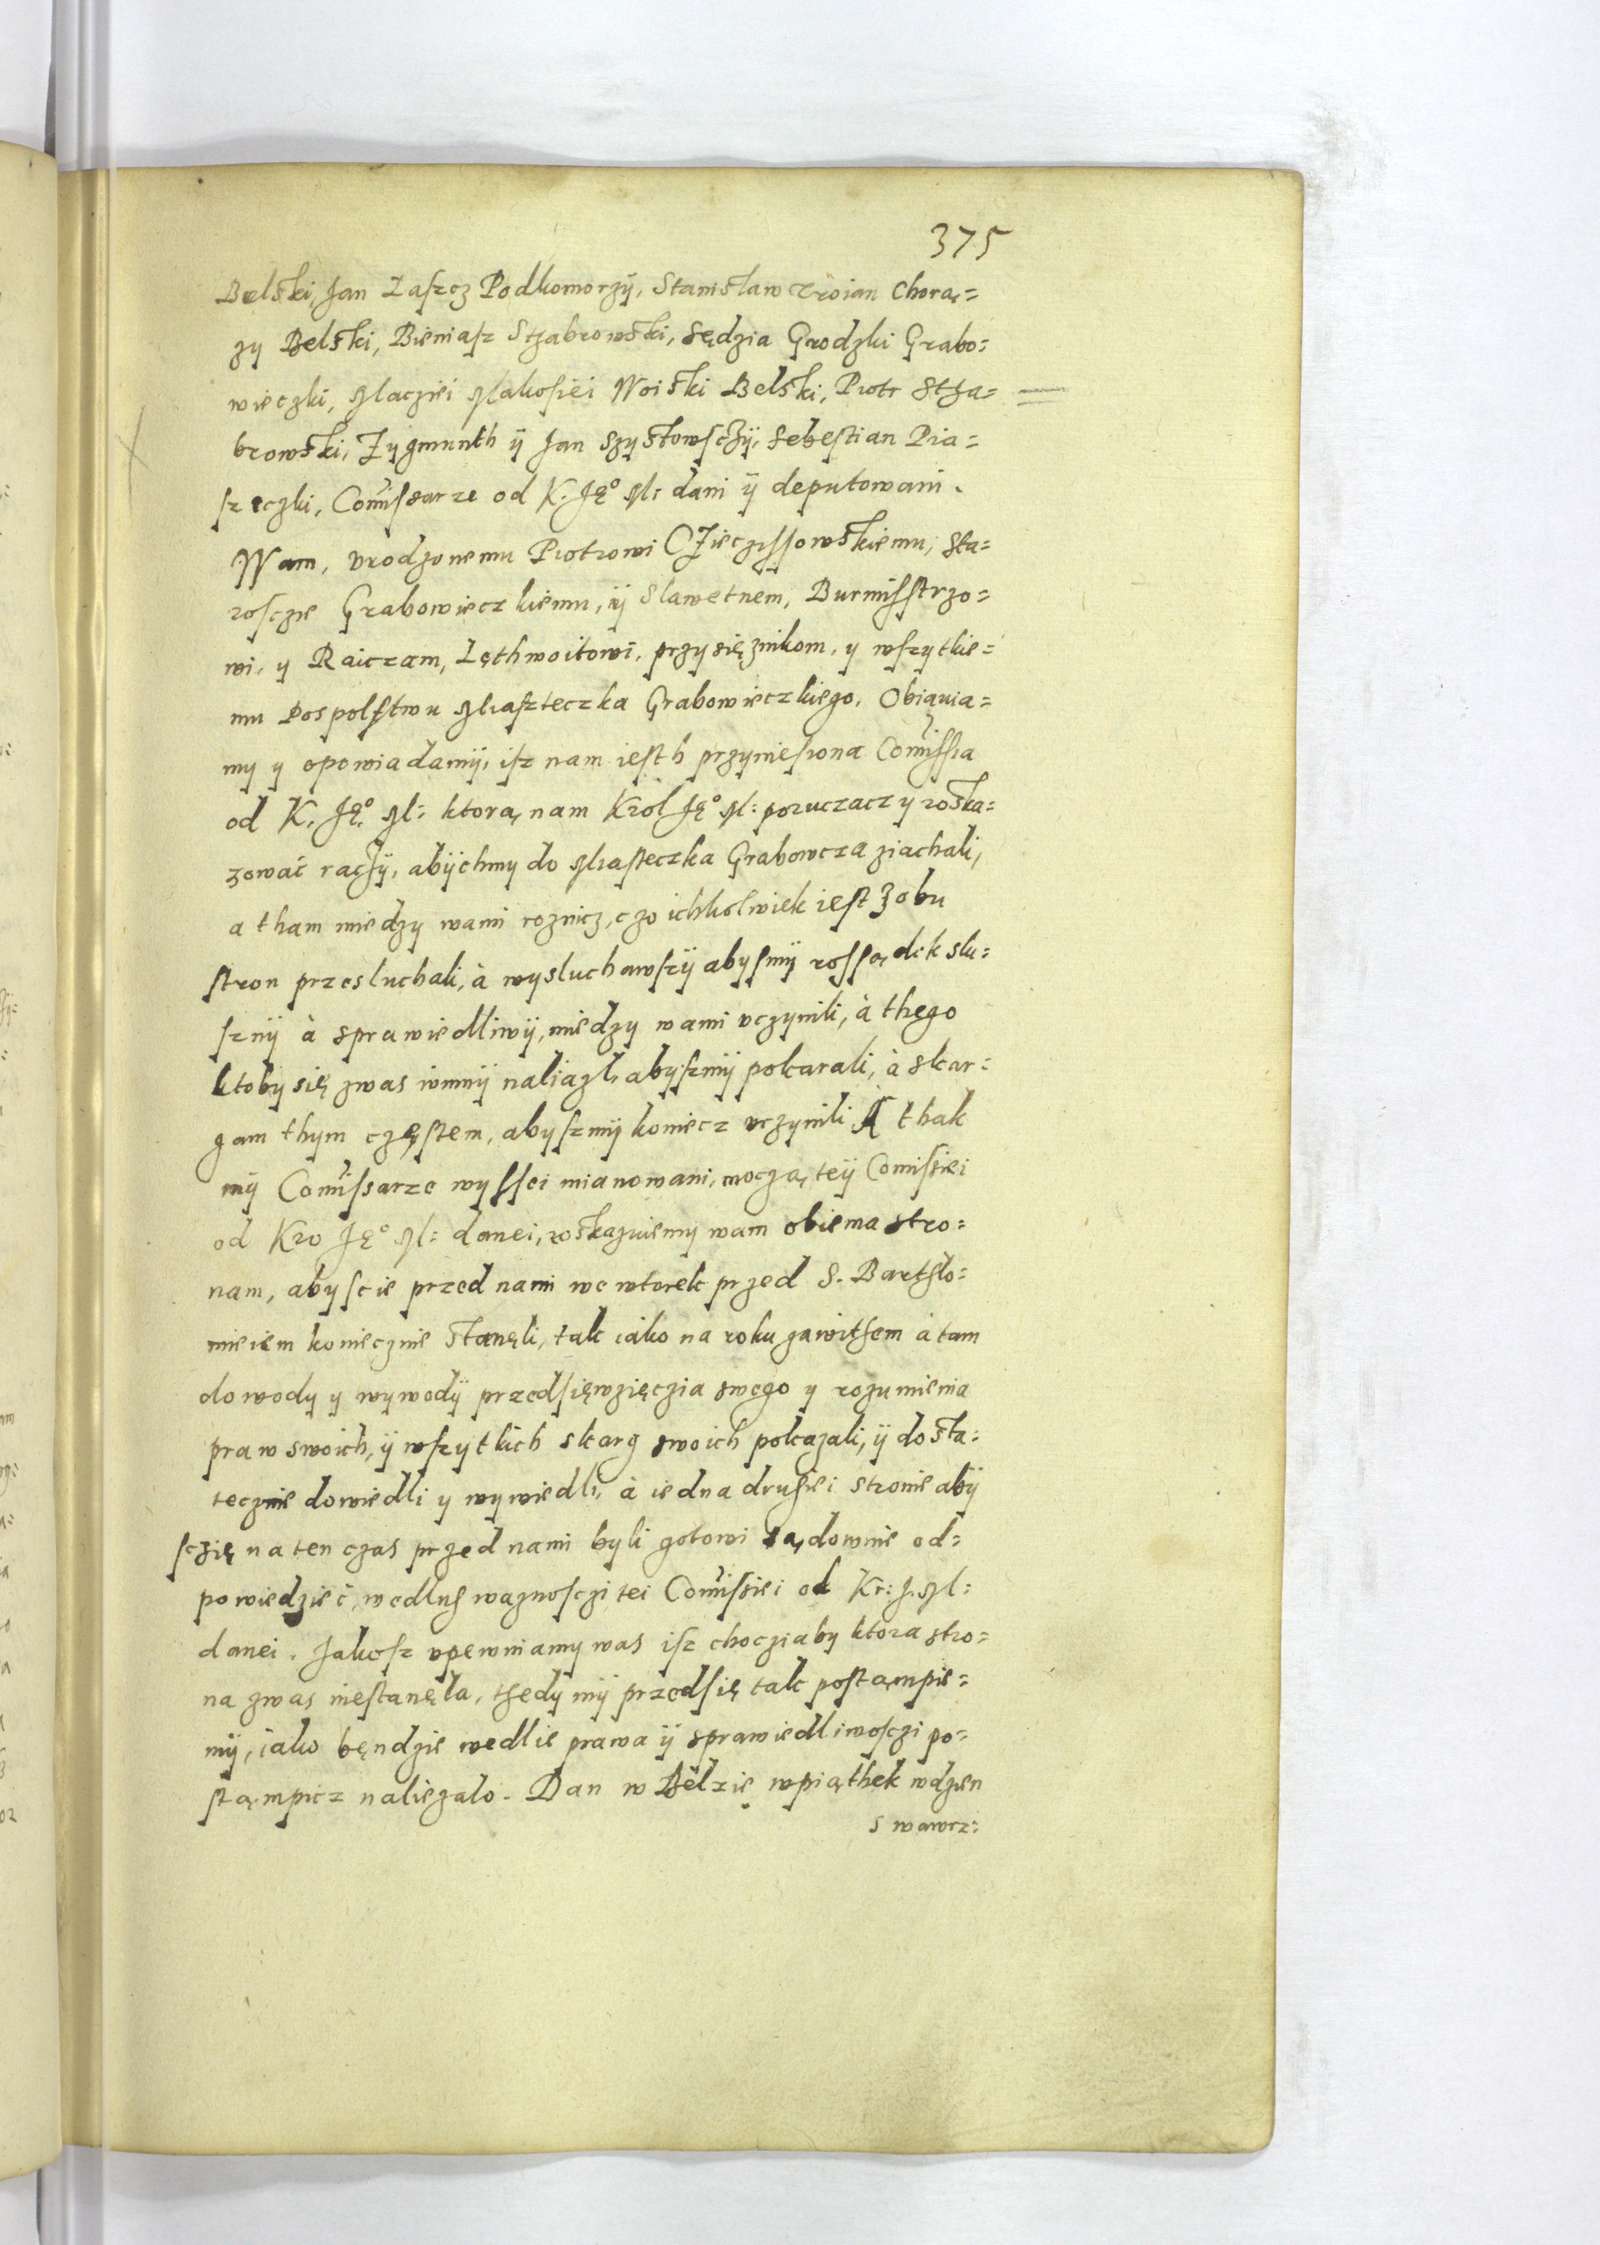 375
Belski, Jan Łaszcz Podkomorzÿ, Stanisław Chorą=
zy Belski, Bieniasz Stzabrowski, Sędzia Grodzki Grabo=
wieczki, Maciei Makosiei Woiski Belski, Piotr Stza=
browski, Zygmunth ÿ Jan Szysłowsczÿ, Sebestian Pia=
szeczki, Comissarze od K. Jęº M: dani ÿ deputowani.
Wam, vrodzonemu Piotrowi Czieczissowskiemu, Sta=
rosczie Grabowieczkiemu, ÿ Slawetnem, Burmisstrzo=
wi, y Raiczam, Lęthwoitowi, przysiężnikom, y wszytkie=
mu Pospolstwu Miaszteczka Grabowieczkiego, Obiąwia=
my y opowiadamÿ, isz nam iesth przyniesiona Comissia
od K. Jęº M: ktorą nam Krol Jęº M: poruczacz y roska=
zować raczÿ, abÿchmy do Miasteczka Grabowcza ziachali,
a tham miedzy wami roznicz, czo ichkolwiek iest z obu
stron przesluchali, à wysluchawszÿ abysmÿ rossądek slu=
sznÿ à sprawiedliwÿ, miedzy wami vczynili, à thego
ktoby się zwas winnÿ naliazl, abyszmÿ pokarali, à skar=
gam thym częstem, abyszmÿ koniecz vczynili A thak
mÿ Comissarze wyssei mianowani, moczą teÿ Comissiei
od Kro Jęº M: danei, roskazuiemy wam obiema stro=
nam, abyscie przed nami we wtorek przed S. Barthlo=
mieiem koniecznie stanęli, tak iako na roku zawithem à tam
dowody y wywodÿ przedsięwzięczia swego y rozumienia
praw swoich, ÿ wszytkich skarg swoich pokazali, ÿ dosta=
tecznie dowiedli y wywiedli, à iedna drugiei stronie abÿ
sczię na ten czas przed nami byli gotowi sądownie od=
powiedzieć, wedlug waznosczi tei Comissiei od Kr: J. M:
danei. Jakosz vpewniamy was isz chocziaby ktora stro=
na zwas niestanęła, thedy mÿ przedsię tak postąmpie=
mÿ, iako będzie wedlie prawa ÿ sprawiedliwosczi po=
stąmpicz naliezalo. Dan w Bełzie wpiąthek wdzien
S wawrz: